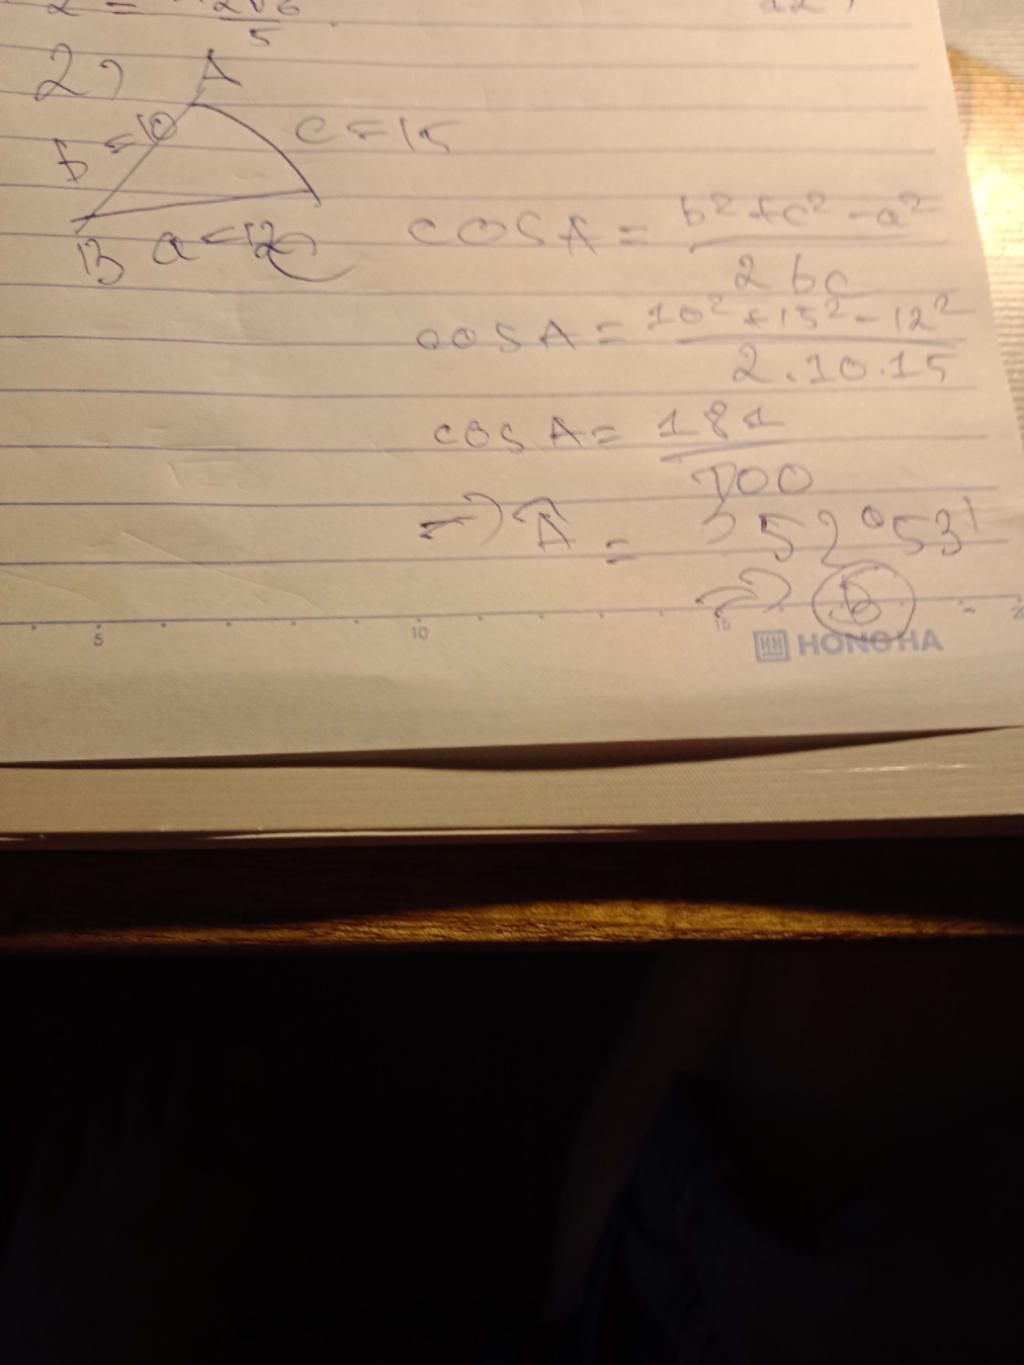 2)
A
b = 10
c = 15
B a = 12 C
cos A = b² + c² - a²
2 bc
cos A = 10² + 15² - 12²
2 . 10 . 15
cos A = 181
300
=> Â = 52°53'
B
5 10 15
HH HONG HA